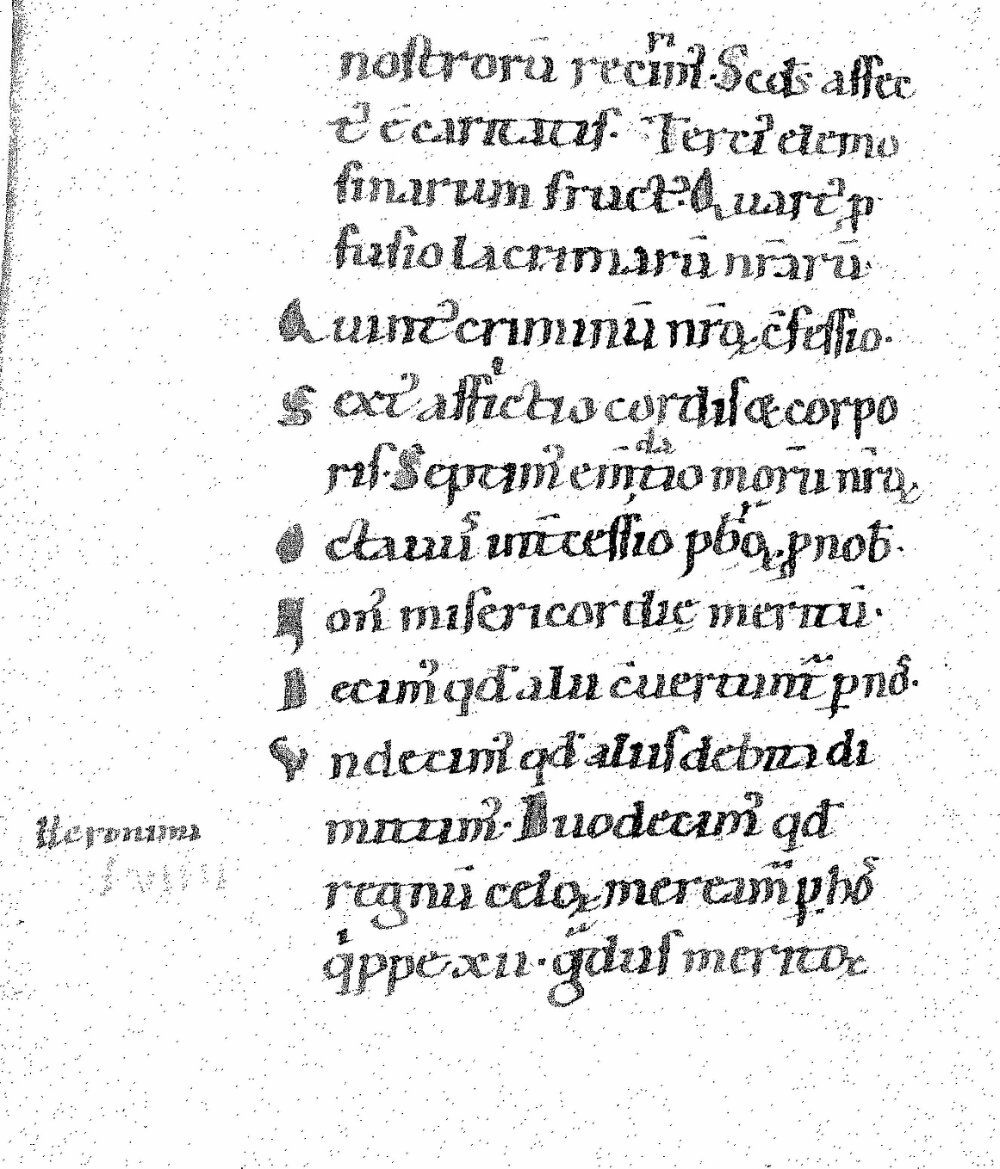 noſtrorū recim᷒. Scds aſſec
t᷒ ē caritatiſ. Terci᷒ elemo
ſinarum fruct᷒. Quart᷒ p
fuſio lacrimarū nr̄arū.
Quint᷒ criminū nr̄oꝝ c̄feſſio.
Sext᷒ afflictio cordiſ & corpo
riſ. Septim᷒ em̄datio morū nr̄oꝝ
Octauus int̄ceſſio ꝓ nob̄.
Non᷒ miſericordię meritū.
Decim᷒ qd̄ alii c̄uertunt᷑ p nos.
Vndecim᷒ qd̄ aliiſ debita di
mittim᷒. Duodecim᷒ qd̄
regnū celoꝝ meream᷑ p hos
qͥppe xii. gᵃduſ meritoꝝ
Ieronimi